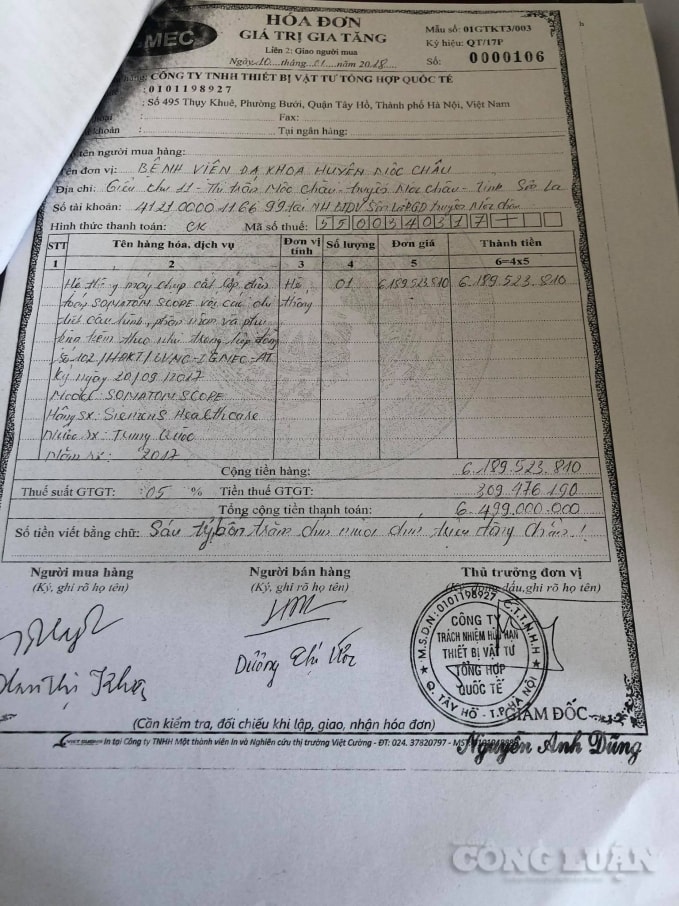 HÓA ĐƠN
GIÁ TRỊ GIA TĂNG
Liên 2: Giao người mua
Ngày 10 tháng 01 năm 2018
Mẫu số: 01GTKT3/003
Ký hiệu: QT/17P
Số: 0000106
MEC
CÔNG TY TNHH THIẾT BỊ VẬT TƯ TỔNG HỢP QUỐC TẾ
0101198927
Số 495 Thụy Khuê, Phường Bưởi, Quận Tây Hồ, Thành phố Hà Nội, Việt Nam
Fax:
Tại ngân hàng:
tên người mua hàng:
tên đơn vị: BỆNH VIỆN ĐA KHOA HUYỆN MỘC CHÂU
Địa chỉ: Tiểu khu 11 - Thị trấn Mộc Châu - Huyện Mộc Châu - Tỉnh Sơn La
Số tài khoản: tại NH
Hình thức thanh toán: CK Mã số thuế: 5500540317
STT Tên hàng hóa, dịch vụ Đơn vị tính Số lượng Đơn giá Thành tiền
1 2 3 4 5 6=4x5
Hệ thống máy chụp cắt lớp điện Hệ 01 6.189.523.810 6.189.523.810
toán SOMATOM SCOPE với các chi thống
tiết cấu hình, phần mềm và phụ
kiện kèm theo như trong hợp đồng
Số 102/HĐKT/
Ký ngày 20/09/2017
Model SOMATOM SCOPE
Hãng SX: Siemens Healthcare
Nước SX: Trung Quốc
Năm SX: 2017
Cộng tiền hàng: 6.189.523.810
Thuế suất GTGT: 05 % Tiền thuế GTGT: 309.476.190
Tổng cộng tiền thanh toán: 6.499.000.000
Số tiền viết bằng chữ: Sáu tỷ bốn trăm chín mươi chín triệu đồng chẵn!
Người mua hàng Người bán hàng Thủ trưởng đơn vị
(Ký, ghi rõ họ tên) (Ký, ghi rõ họ tên) dấu, ghi rõ họ tên)
M.S.D.N: 0101198927 C.T.T.N.H.H
CÔNG TY
TRÁCH NHIỆM HỮU HẠN
THIẾT BỊ VẬT TƯ
TỔNG HỢP
QUỐC TẾ
Q. TÂY HỒ - T.P HÀ NỘI
GIÁM ĐỐC
Nguyễn Anh Dũng
(Cần kiểm tra, đối chiếu khi lập, giao, nhận hóa đơn)
In tại Công ty TNHH Một thành viên In và Nghiên cứu thị trường Việt Cường - ĐT: 024. 37820797 - MST:
CÔNG LUẬN